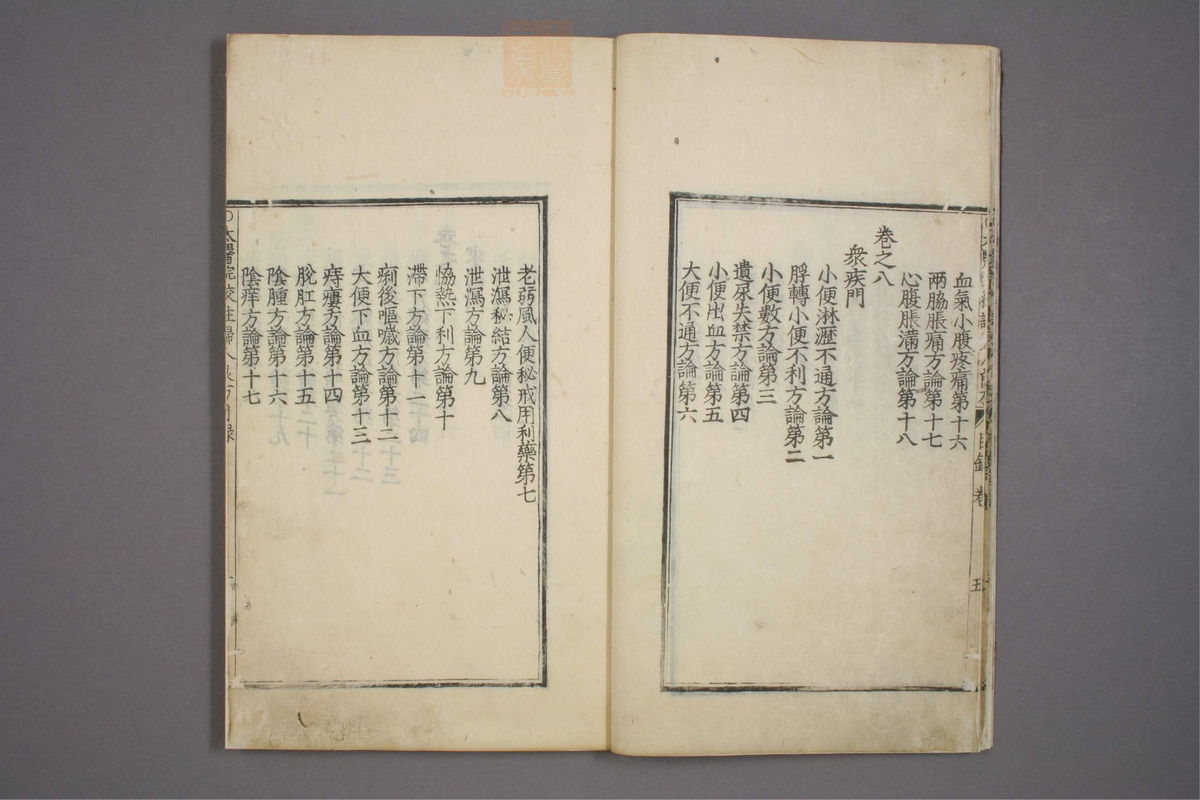 血氣小腹疼痛第十六
兩脇脹痛方論第十七
心腹脹滿方論第十八
卷之八
衆疾門
小便淋瀝不通方論第一
脬轉小便不利方論第二
小便數方論第三
遺尿失禁方論第四
小便出血方論第五
大便不通方論第六
目錄 卷
五
老弱風人便秘戒用利藥第七
泄瀉秘結方論第八
泄瀉方論第九
恊熱下利方論第十
滯下方論第十一
痢後嘔噦方論第十二
大便下血方論第十三
痔瘻方論第十四
脫肛方論第十五
陰腫方論第十六
陰痒方論第十七
太醫院校註婦人良方目錄
zysj.com.cn